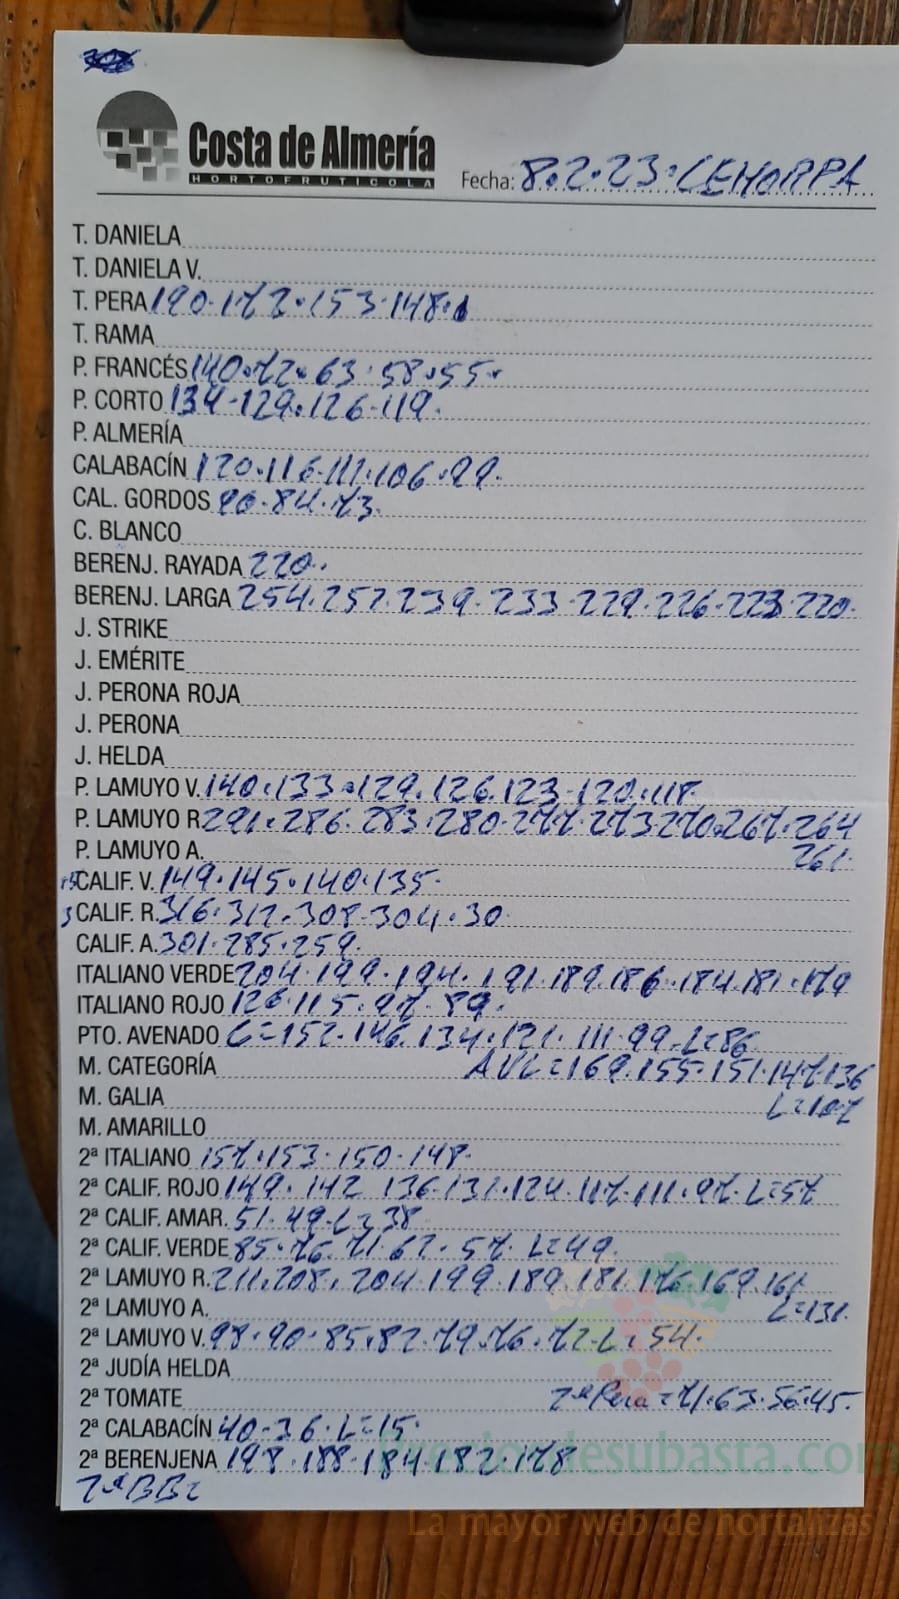 Costa de Almería
HORTOFRUTICOLA
Fecha: 8.2.23. CEHORPA
T. DANIELA
T. DANIELA V.
T. PERA 190.173.153.148.
T. RAMA
P. FRANCÉS 140.72.63.58.55.
P. CORTO 134-129.126-119.
P. ALMERÍA
CALABACÍN 120.116.111.106.99.
CAL. GORDOS 90.84.73.
C. BLANCO
BERENJ. RAYADA 220.
BERENJ. LARGA 254.257.239-233-229.226-223-220.
J. STRIKE
J. EMÉRITE
J. PERONA ROJA
J. PERONA
J. HELDA
P. LAMUYO V. 140.133.129.126.123-120.118
P. LAMUYO R 291.286.283.280-277-273 270.267.264
P. LAMUYO A. 261.
CALIF. V. 149.145.140.135.
CALIF. R. 316.312.308-304.30
CALIF. A. 301-285.259.
ITALIANO VERDE 204.199.194.191.189.186.184.181.179
ITALIANO ROJO 126.115.97.89.
PTO. AVENADO C=152.146.134.121.111-99-L=86
M. CATEGORÍA AVL=169.155-151.147.136
M. GALIA L=107
M. AMARILLO
2ª ITALIANO 157.153-150-148.
2ª CALIF. ROJO 149.142 136.131.124.117.111.97.L=57
2ª CALIF. AMAR. 51.49.L=38
2ª CALIF. VERDE 85.76.71.62.57.L=49.
2ª LAMUYO R. 211.208.204.199.189.181.176.169.161
2ª LAMUYO A. L=131.
2ª LAMUYO V. 98.90.85.82.79.76.72-L=54.
2ª JUDÍA HELDA
2ª TOMATE 2ª Pera=71.63.56.45.
2ª CALABACÍN 40-36.L=15.
2ª BERENJENA 198.188-184.182.178
2ª BB=
Preciosdesubasta.com
La mayor web de hortalizas